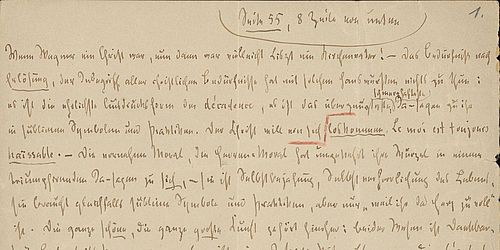 Seite 55, 8 Zeile von unten
1.
Wenn Wagner ein Christ war, nun dann war vielleicht Liszt ein Kirchenvater! — Das Bedürfniss nach
Erlösung, der Inbegriff aller christlichen Bedürfnisse hat mit solchen Hanswürsten nichts zu thun:
schmerzhafteste
es ist die ehrlichste Ausdrucksform der décadence, es ist das überzeugteste Ja-sagen zu ihr
in sublimen Symbolen und Praktiken. Der Christ will von sich loskommen. Le moi est toujours
haïssable. — Die vornehme Moral, die Herren-Moral hat umgekehrt ihre Wurzel in einem
triumphirenden Ja-sagen zu sich, — sie ist Selbstbejahung, Selbstverherrlichung des Lebens,
sie braucht gleichfalls sublime Symbole und Praktiken, aber nur „weil ihr das Herz zu voll“
ist. Die ganze schöne, die ganze große Kunst gehört hierher: beider Wesen ist Dankbar-